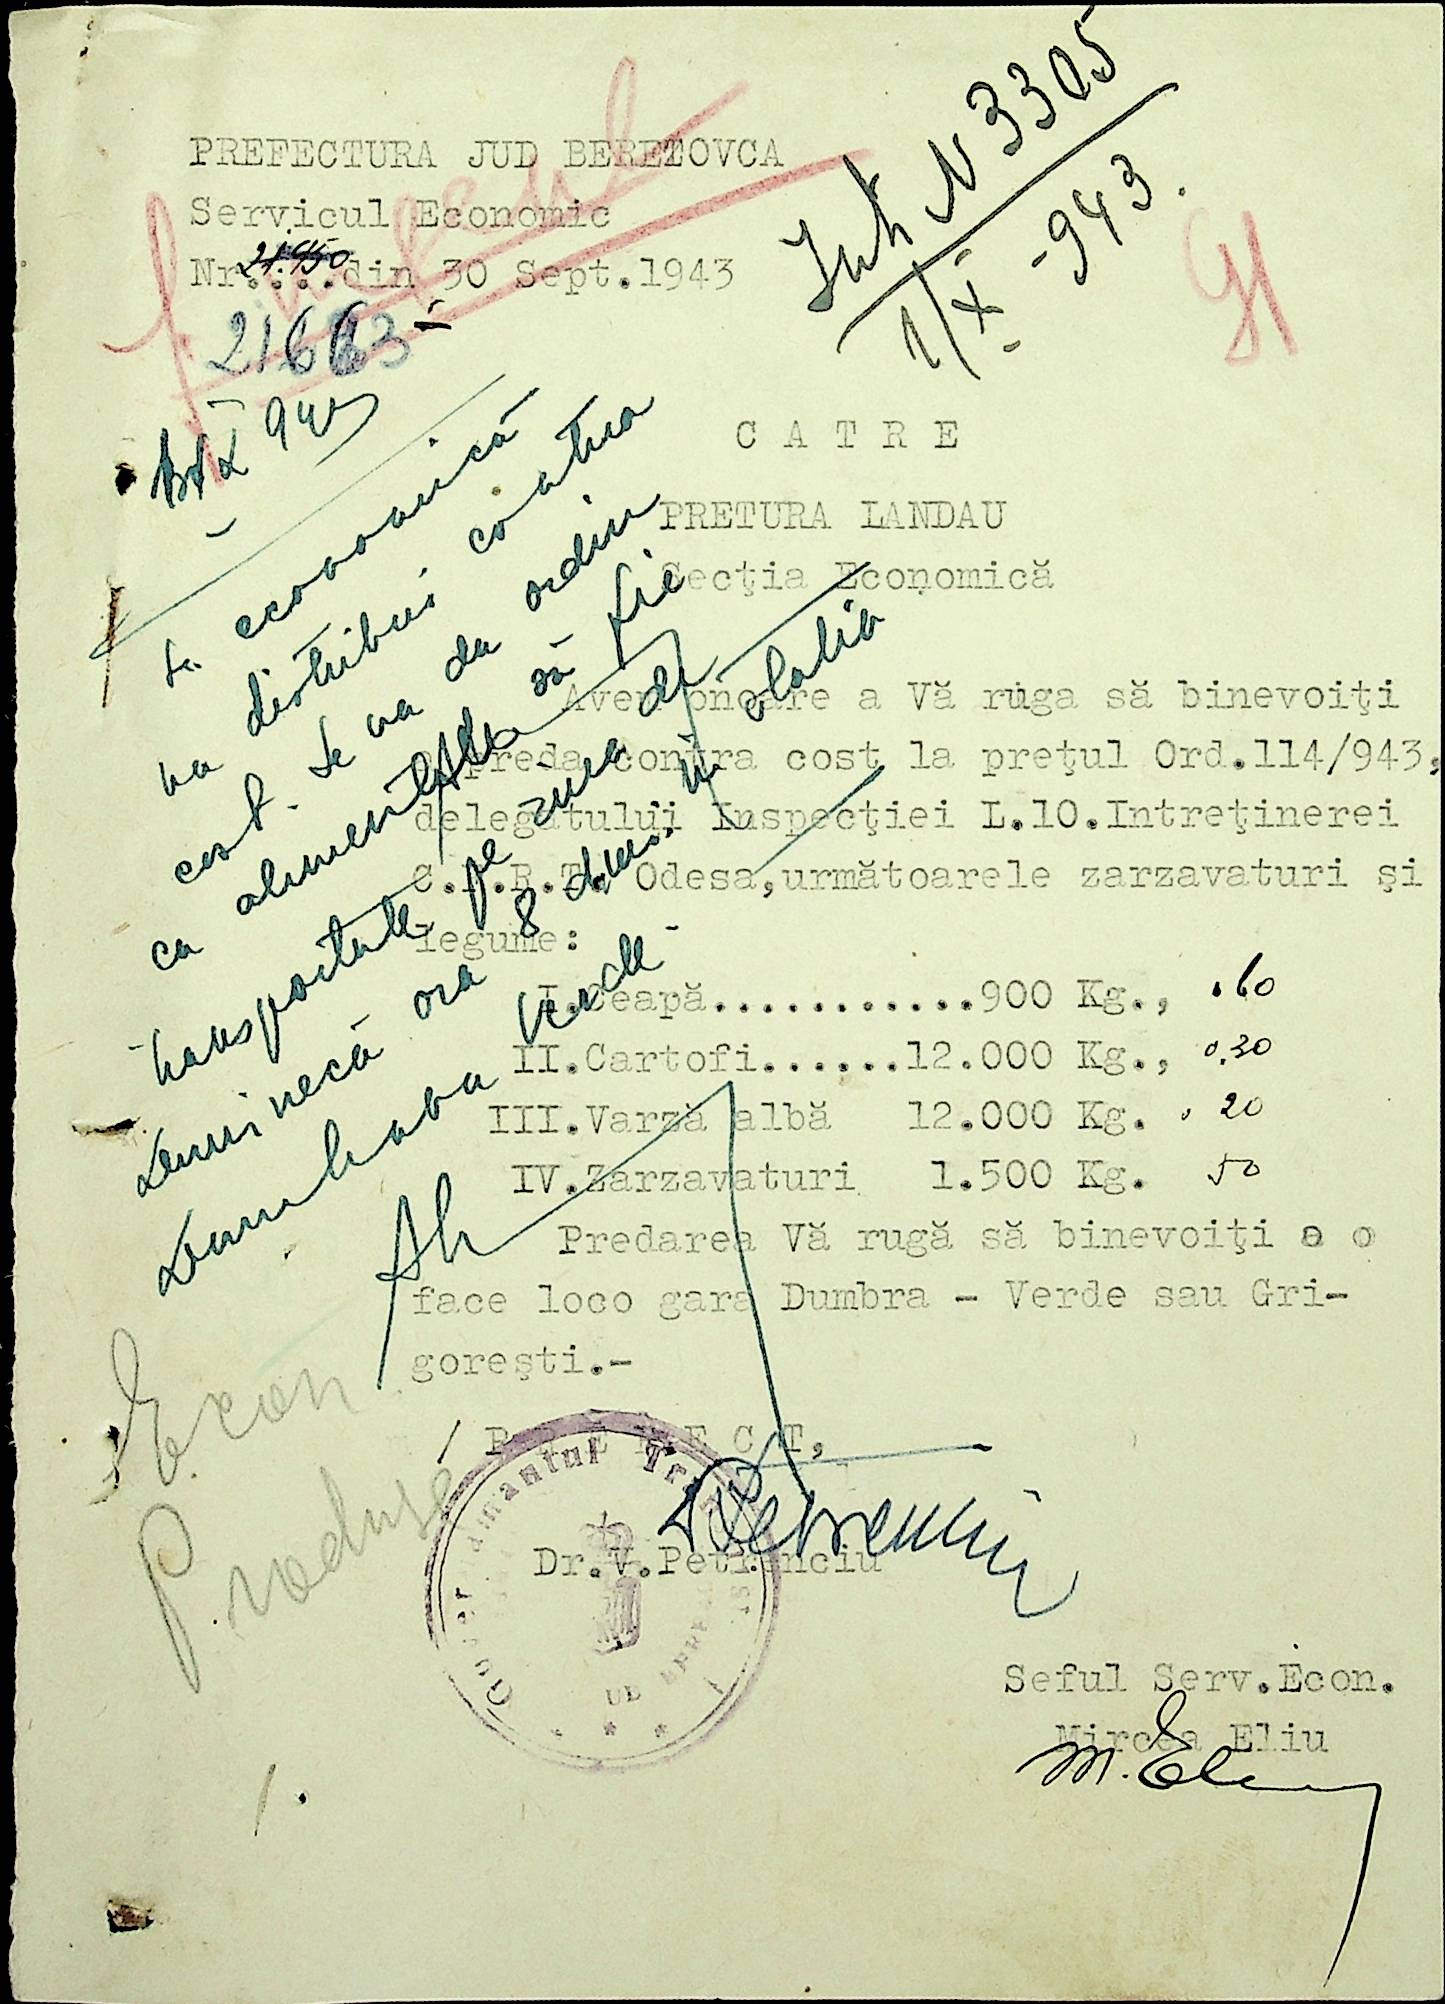 Int N 3305
1/X - 943.
PREFECTURA JUD BEREZOVCA
Servicul Economic
Nr.....din 30 Sept.1943
21450
21663
C A T R E
PRETURA LANDAU
Secţia Economică
Avem onoare a Vă ruga să binevoiţi
a preda contra cost la preţul Ord.114/943,
delegatului Inspecţiei L.10.Intreţinerei
C.F.R.T. Odesa,următoarele zarzavaturi şi
legume:
I.Ceapă............900 Kg., .60
II.Cartofi......12.000 Kg., 0.30
III.Varză albă 12.000 Kg. . 20
IV.Zarzavaturi 1.500 Kg. 50
Predarea Vă rugă să binevoiţi a o
face loco gara Dumbra - Verde sau Gri-
goreşti.-
/ P R E F E C T,
Dr.V.Petrenciu
Seful Serv.Econ.
Mircea Eliu
M. Eliu
S. economică
va distribui contra
cost. Se va da ordin
ca alimentele să fie
transportate pe ziua de
Duminecă ora 8 dim. în stația
Dumbrava Verde
Econ.
Produse
Guvernamantul Transnistriei